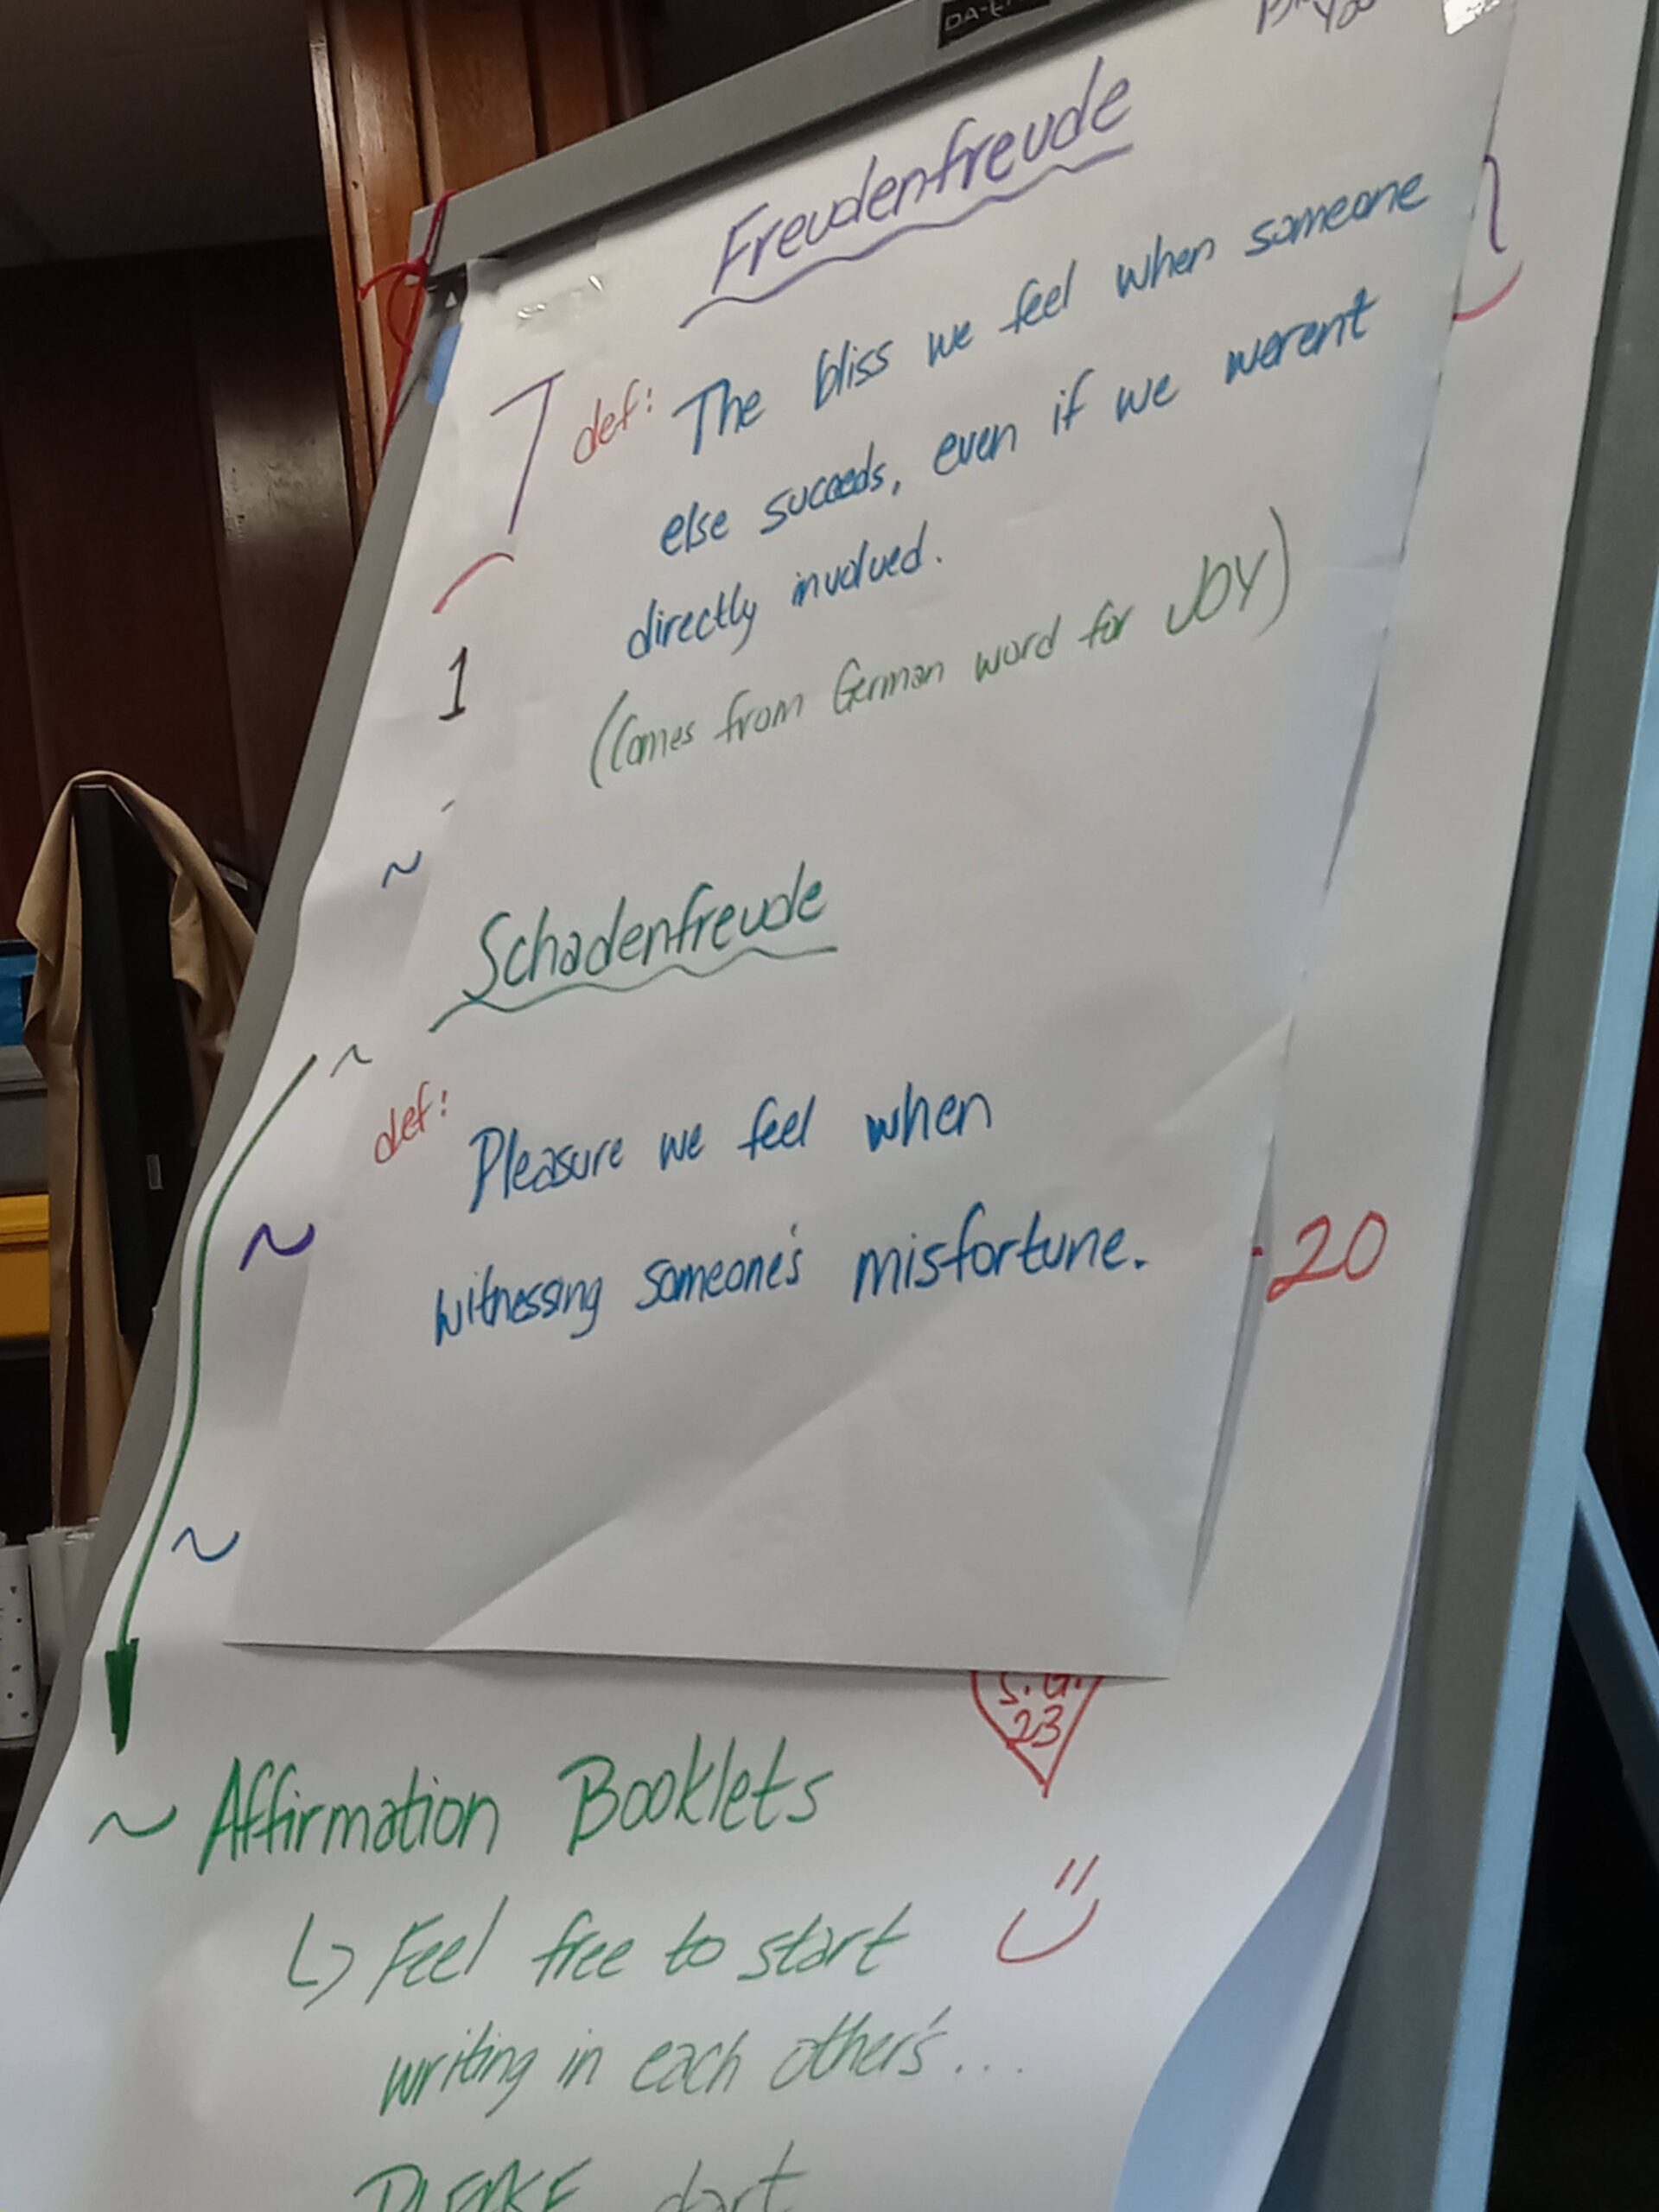 Freudenfreude
def: The bliss we feel when someone
else succeds, even if we werent
directly involved.
(Comes from German word for JOY)
1
Schadenfreude
def: Pleasure we feel when
witnessing someone's misfortune.
20
23
~ Affirmation Booklets
Feel free to start
writing in each other's...
PLEASE start